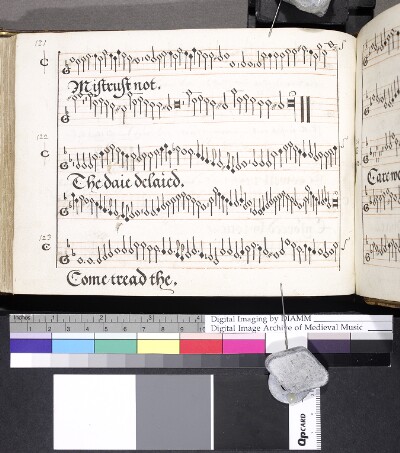 121
Mistrust not.
122
The daie delaied.
123
Come tread the.
Inches 1 2 3 4
Digital Imaging by DIAMM
Digital Image Archive of Medieval Music
QPCARD